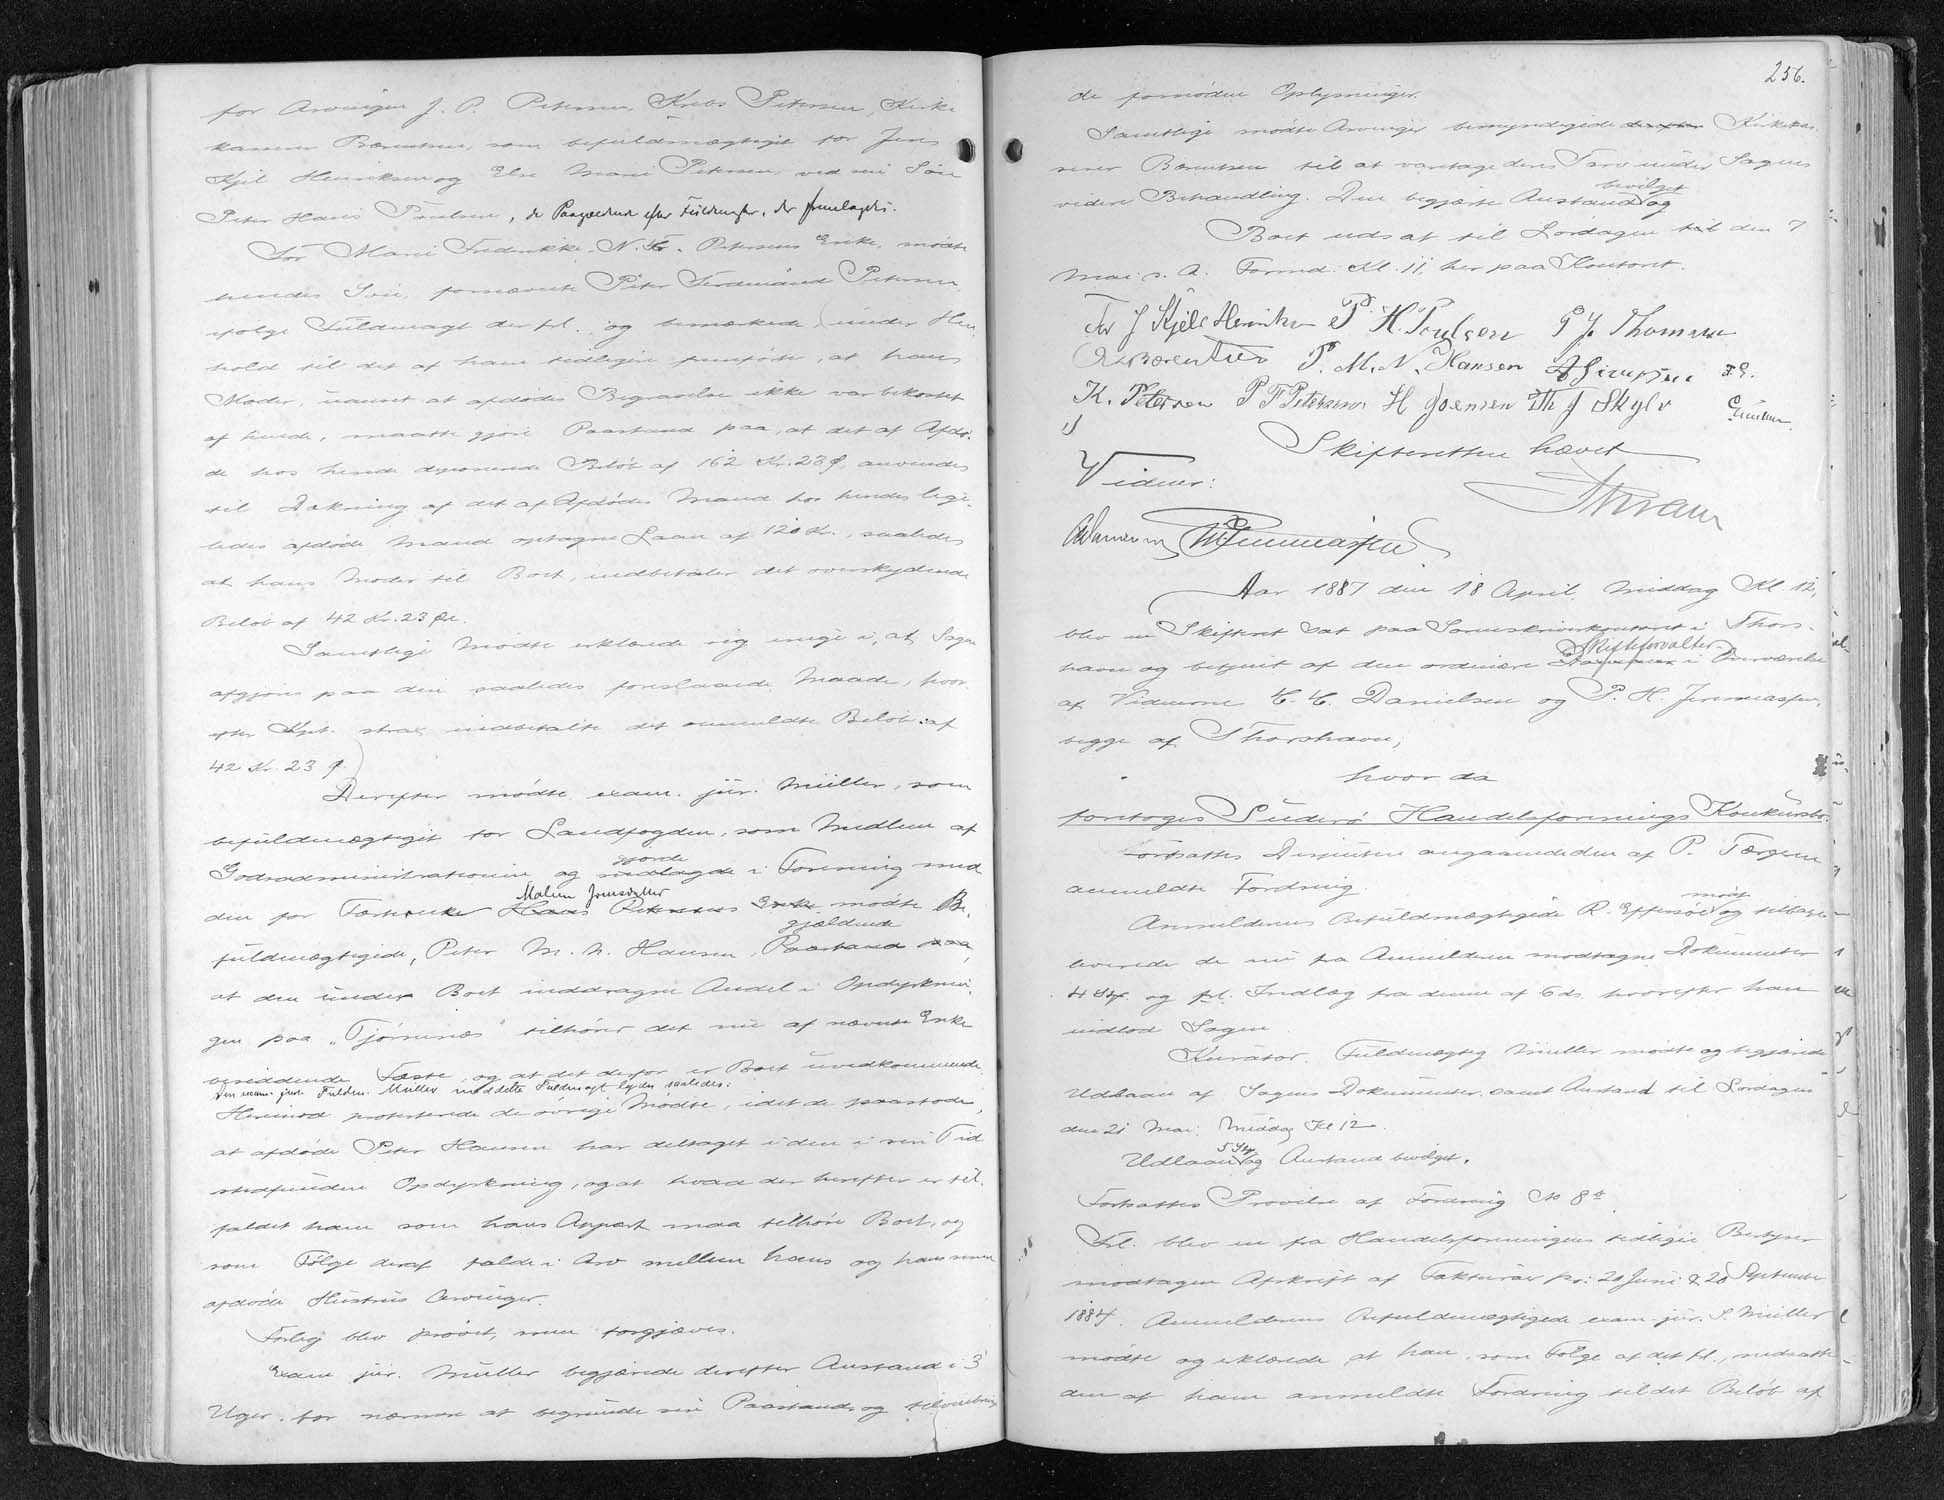 for Arvingen J. P. Petersen, Krebs Petersen, Kirke
kasserer Bærentsen, som befuldmægtiget for Jens
Kjel Henriksen og Else Marie Petersen ved sin Søn
Peter Hans Poulsen, de Paagældende efter Fuldmagter, der fremlagdes.
For Marie Fredrikke, N. Kr. Petersens Enke, mødte
hendes Søn, fornævnte Peter Ferdinand Petersen
ifølge Fuldmagt der frl. og bemærkede, under Hen-
hold til det af ham tidligere fremførte, at hans
Moder, uanset at afdødes Begravelse ikke var bekostet
af hende, maatte gjøre Paastand paa, at det af Afdø-
de hos hende Beløb af 162 Kr. 23 Ø anvendes
til Dækning af det af Afdødes Mand hos hendes lige-
ledes afdøde Mand optagne Laan af 120 Kr., saaledes
at hans Moder til Boet indbetaler det overskydende
Beløb af 42 Kr. 23 Øre.
Samtlige Mødte erklærede sig enige i, at Sagen
afgjøres paa den saaledes foreslaaede Maade, hvor-
efter strax indbetalte det ommeldte Beløb af
42 Kr. 23 Ø.
Derefter mødte exam. jur. Müller, som
befuldmægtiget for Landfogden, som Medlem af
Godsadministrationen og nedlagde gjorde i Forening med
den for Malene Joensdatter Hans Petersens Enke mødte Be-
fuldmægtigede, Peter M. N. Hansen, Paastand paa gjældende
at den under Boet inddragne Andel i Opdyrknin-
gen paa "Tjørnenæs" tilhører det nu af nævnte Enke
besiddende Fæste, og at det derfor er Boet uvedkommende.
Den exam. jur. Fuldm. Müller meddelte Fuldmagt lyder saaledes:
Herimod protesterede de øvrige Mødte, idet de paastode,
at afdøde Peter Hansen har deltaget i den i sin Tid
stedfundne Opdyrkning, og at hvad der herefter er til-
faldet ham som hans Appart maa tilhøre Boet, og
som Følge deraf falde i Arv mellem hans og hans senere
afdøde Hustrus Arvinger.
Forlig blev prøvet, men forgjæves.
Exam jur. Müller begjærede derefter Anstand i 3
Uger, for nærmere at begrunde sin Paastand og tilveiebringe
256.
de fornødne Oplysninger.
Samtlige mødte Arvinger bemyndigede derefter Kirkekas-
serer Bærentsen til at varetage deres Tarv under Sagens
videre Behandling. Den begjærte Anstand bevilget og
Boet udsat til Lørdagen den 7
Mai s. A. Formd. Kl. 11 her paa Kontoret.
For J Kjels Henriksen P. H. Poulsen P J. Thomsen
Bærentsen P. M. N. Hansen
K. Petersen P F Petersen H Joensen J Skylv
Skifteretten hævet
Vidner:
Danielsen P Jeremiasen
Aar 1887 den 18 April, Middag Kl. 12,
blev en Skifteret sat paa Sorenskriverkontoret i Thors-
havn og betjent af den ordinære Skifteforvalter i Overværelse
af Vidnerne C. C. Danielsen og P. H. Jeremiasen,
begge af Thorshavn,
hvor da
foretoges Suderø Handelsforenings Konkursbo.
Fortsattes Disputen angaaende den af P. Færgem
anmeldte Fordring.
Anmelderens Befuldmægtigede R. Effersøe mødt og tilbage-
leverede de nu fra Anmelderen modtagne Dokumenter
4 Stk. og frl. Indlæg fra denne af 6 ds. hvorefter han
indlod Sagen.
Kurator, Fuldmægtig Müller mødte og begjærede
Udlaan af Sagens Dokumenter samt Anstand til Lørdagen
den 21 Mai, Middag Kl 12.
Udlaan 5 Stk. og Anstand bevilget.
Fortsattes Prøvelse af Fordring No 8
Frl. blev en fra Handelsforeningens tidligere Bestyrer
modtagen Afskrift af Fakturaer pr: 20 Juni & 20 September
1884. Anmelderens Befuldmægtigede exam. jur. S. Müller
mødte og erklærede, at han, som Følge af det frl., nedsatte
den af ham anmeldte Fordring til det Beløb af